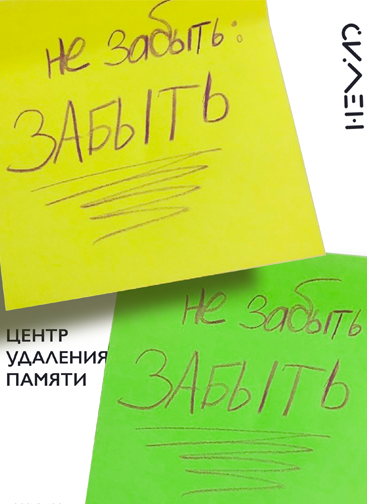 не забыть:
ЗАБЫТЬ
СИЛЕН
не забыть
ЗАБЫТЬ
ЦЕНТР
УДАЛЕНИЯ
ПАМЯТИ